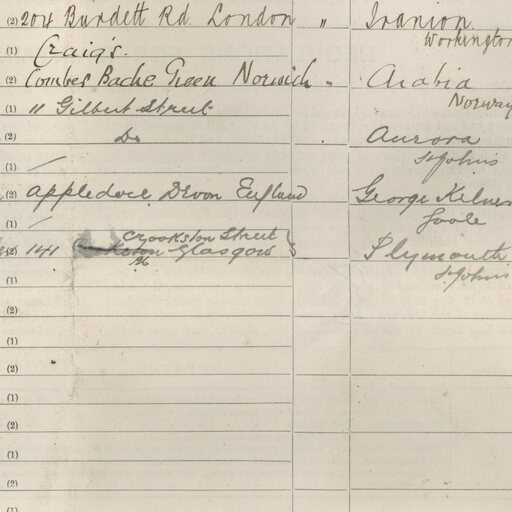 (2) 204 Burdett Rd. London " Iranion
Workington
(1) Craig's.
(2) Combes Bache Green Norwich " Arabia
Norway
(1) 11 Gilbert Street
(2) Do Aurora
St Johns
(1) /
(2) Appledore Devon England George Kelner
Goole
(1) /
Crookston Street
(2) 141 Glasgow Plymouth
St Johns
(1)
(2)
(1)
(2)
(1)
(2)
(1)
(2)
(1)